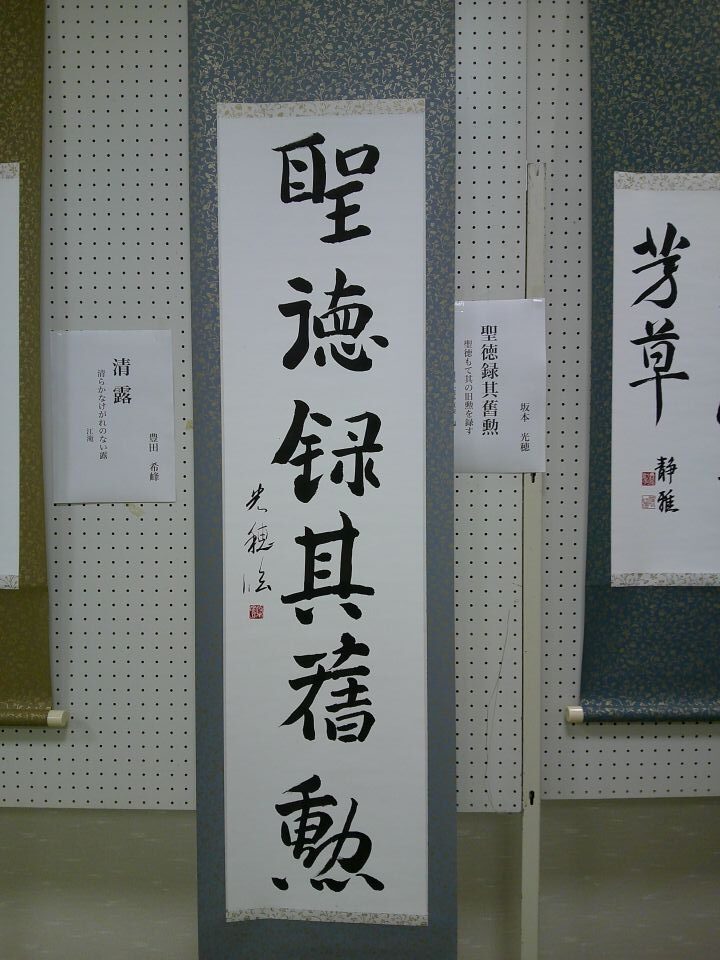 聖徳録其舊勲
光穂臨
聖徳録其舊勲
聖徳もて其の旧勲を録す
坂本 光穂
清露
清らかなけがれのない露
江滝
豊田 希峰
芳草
静雅